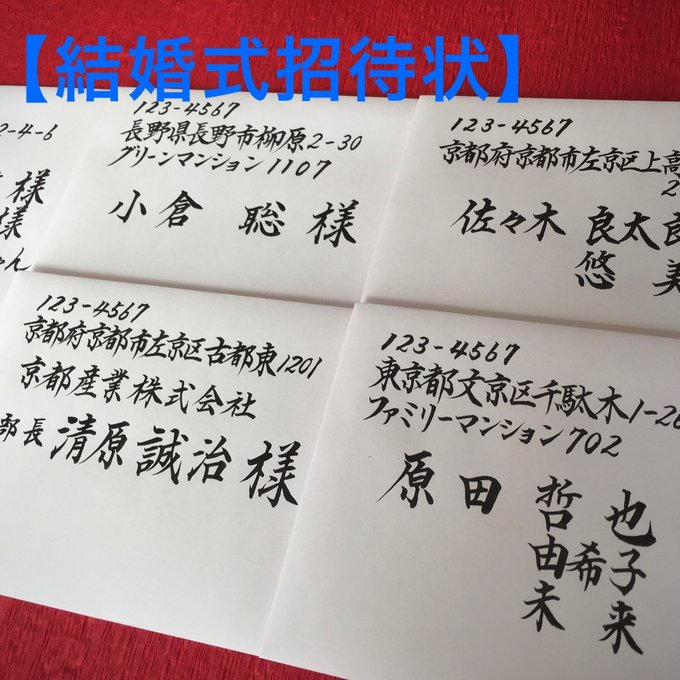 【結婚式招待状】
2-4-6
様
様
ゃん
123-4567
長野県長野市柳原2-30
グリーンマンション1107
小倉 聡 様
123-4567
京都府京都市左京区上高
2
佐々木 良太郎
悠美
123-4567
京都府京都市左京区古都東1201
京都産業株式会社
部長 清原誠治 様
123-4567
東京都文京区千駄木1-26
ファミリーマンション702
原田 哲也
由希子
未来